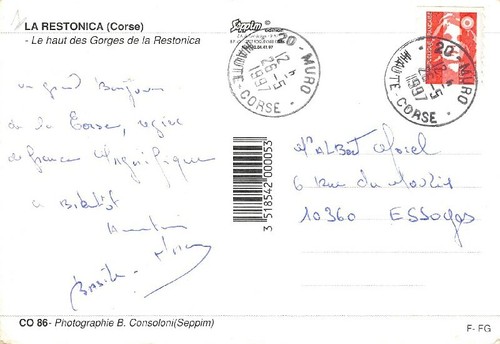 LA RESTONICA (Corse)
- Le haut des Gorges de la Restonica
Seppim
20 - MURO
12 h
26 - 5
1997
HAUTE-CORSE
20 - MURO
12 h
26 - 5
1997
HAUTE-CORSE
un grand Bonjour
de la Corse, région
de france Magnifique
a Bientot
3 518542 000053
Mr ALBERT
6 rue du
10360 ESSOYES
CO 86- Photographie B. Consoloni(Seppim)
E- FG